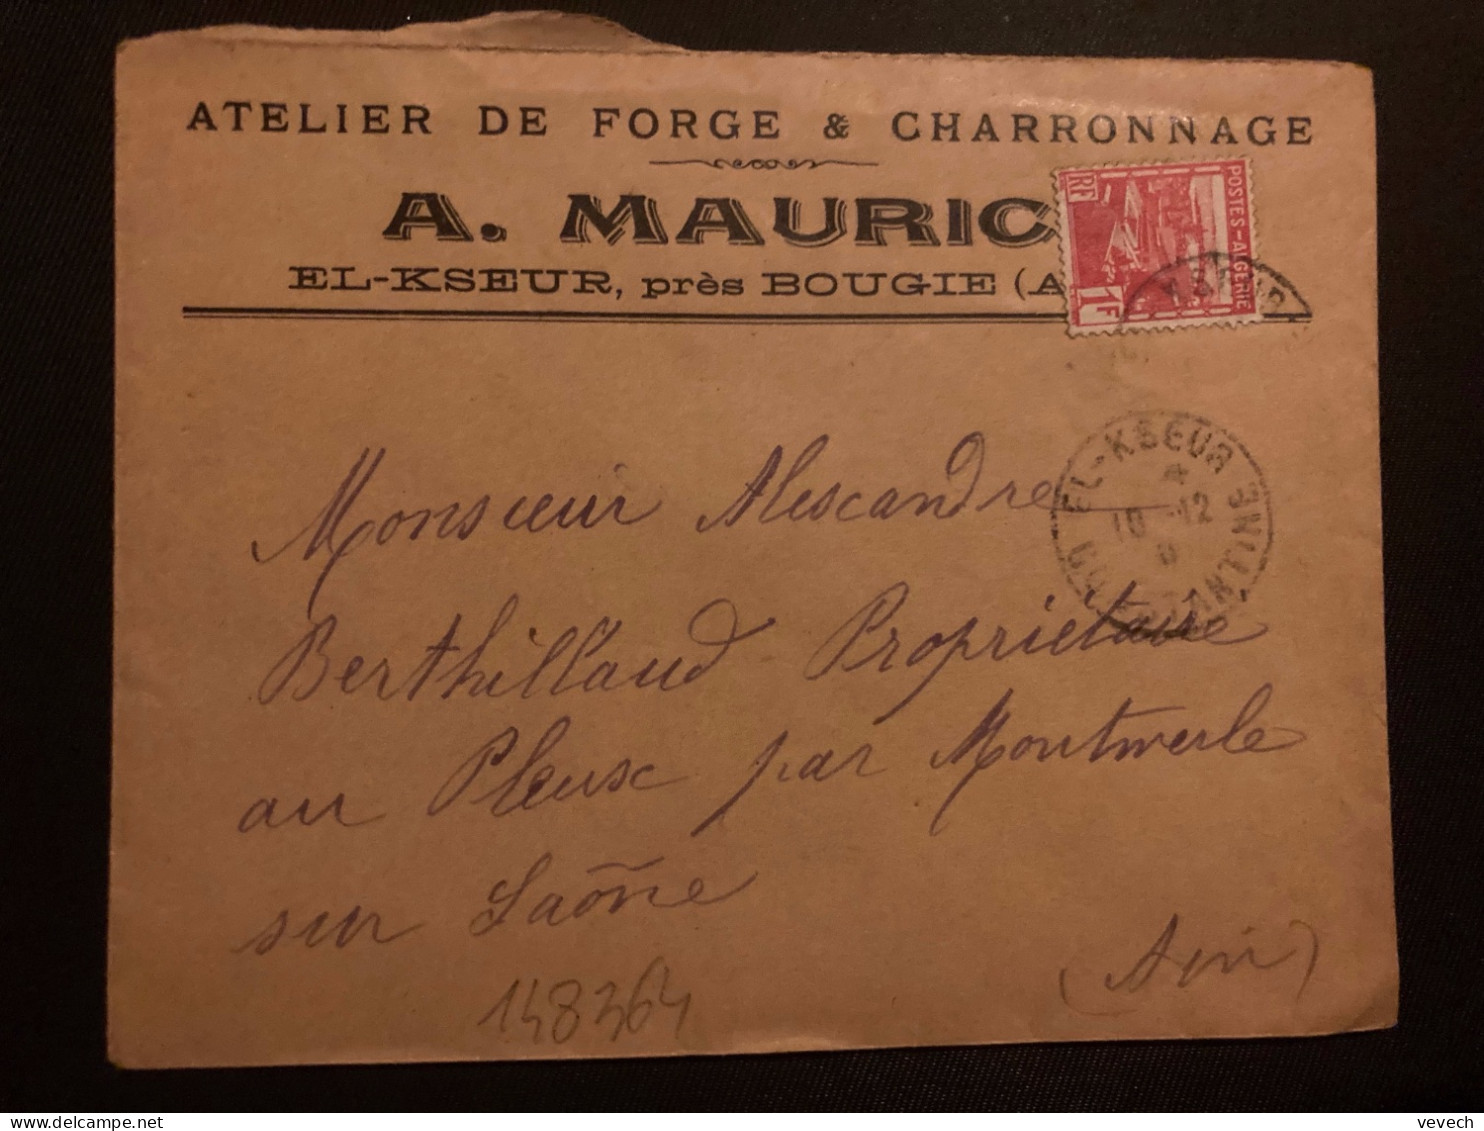 ATELIER DE FORGE & CHARRONNAGE
A. MAURIC
EL-KSEUR, près BOUGIE (A
POSTES-ALGERIE
RF
1F
EL-KSEUR
10 -12
CONSTANTINE
Monsieur Alexandre
Berthillaud Propriétaire
au Pleux par Montmerle
sur Saône
(Ain)
148364
vevech
delcampe.net